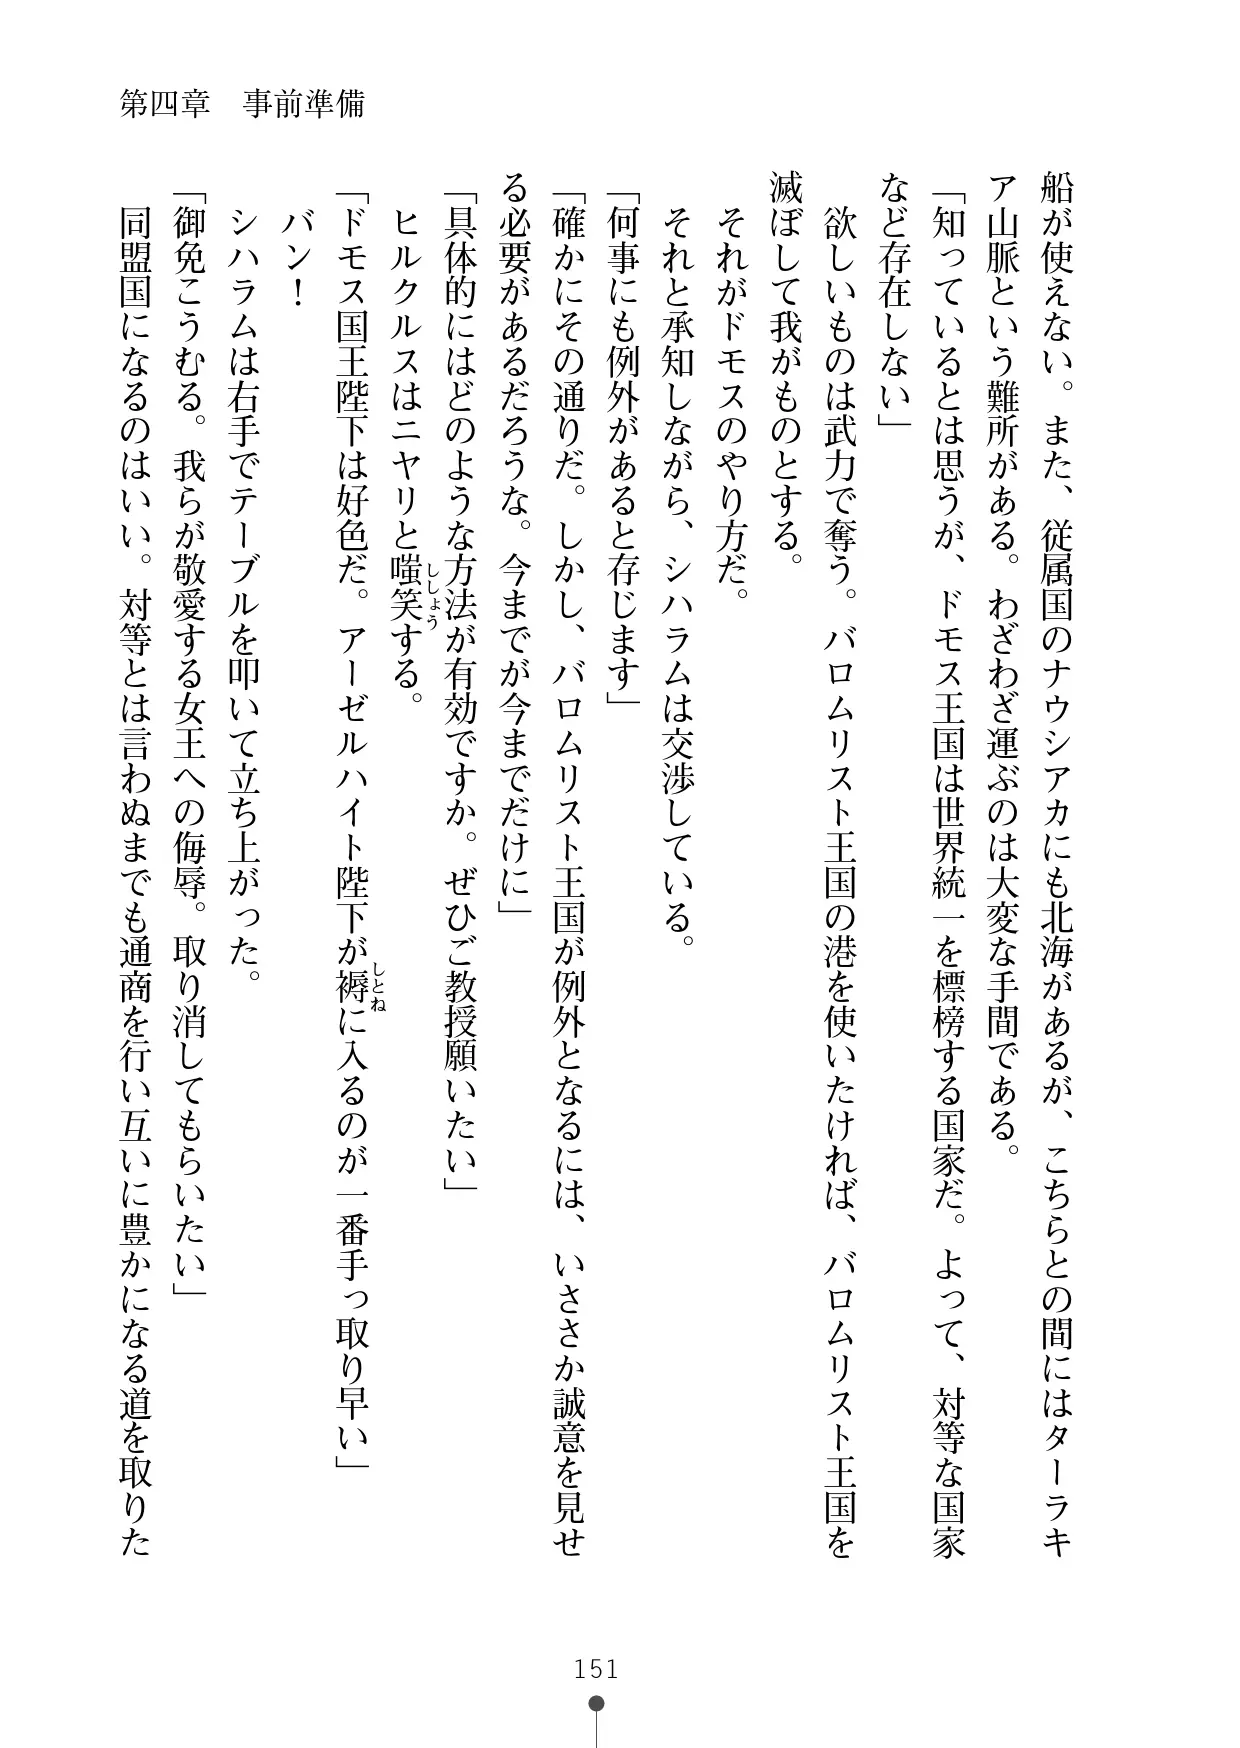 第四章　事前準備
船が使えない。また、従属国のナウシアカにも北海があるが、こちらとの間にはターラキ
ア山脈という難所がある。わざわざ運ぶのは大変な手間である。
「知っているとは思うが、ドモス王国は世界統一を標榜する国家だ。よって、対等な国家
など存在しない」
　欲しいものは武力で奪う。バロムリスト王国の港を使いたければ、バロムリスト王国を
滅ぼして我がものとする。
　それがドモスのやり方だ。
　それと承知しながら、シハラムは交渉している。
「何事にも例外があると存じます」
「確かにその通りだ。しかし、バロムリスト王国が例外となるには、いささか誠意を見せ
る必要があるだろうな。今までが今までだけに」
「具体的にはどのような方法が有効ですか。ぜひご教授願いたい」
　ヒルクルスはニヤリと嗤笑ししょうする。
「ドモス国王陛下は好色だ。アーゼルハイト陛下が褥しとねに入るのが一番手っ取り早い」
　バン！
　シハラムは右手でテーブルを叩いて立ち上がった。
「御免こうむる。我らが敬愛する女王への侮辱。取り消してもらいたい」
　同盟国になるのはいい。対等とは言わぬまでも通商を行い互いに豊かになる道を取りた
151